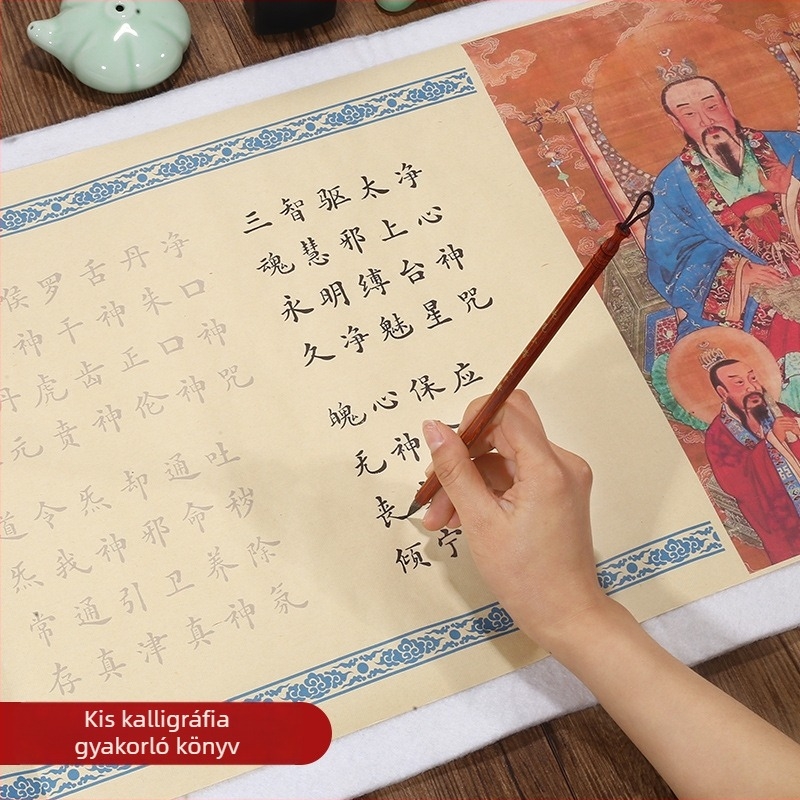 净心神咒
太上台星应
驱邪缚魅保
智慧明净心神宁
三魂永久魄无丧倾
净口神咒
丹朱口神吐秽除氛
舌神正伦通命养神
罗千齿神却邪卫真
侯神虎贲炁神引津
丹元令我通真
道炁常存
Kis kalligráfia
gyakorló könyv